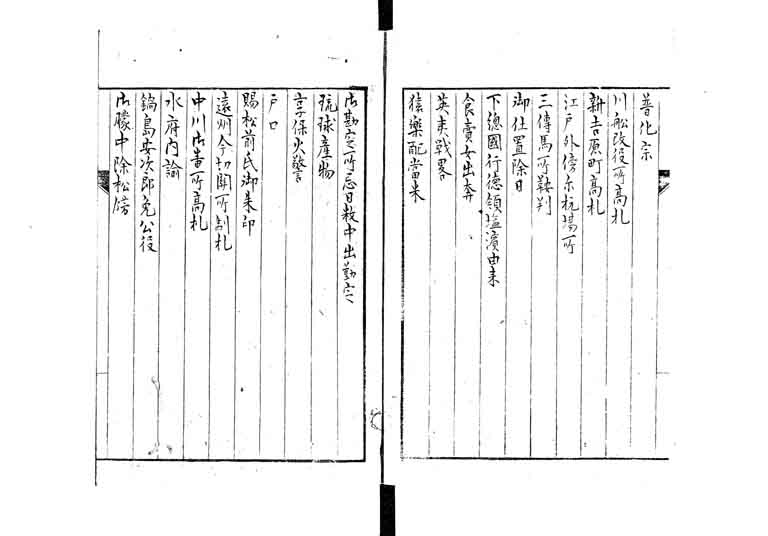 普化宗
川舩改役所高札
新吉原町高札
江戸外傍示杭場所
三傳馬所鞍判
御仕置除日
下總國行德領塩濱由来
食賣女出奔
英夷戰畧
猿樂配當米
御勘定所忌日数中出勤定
琉球産物
享保火警
戸口
賜松前氏御朱印
遠州今切関所制札
中川御番所高札
水府内諭
鍋島安次郎免公役
御朦中除松飾